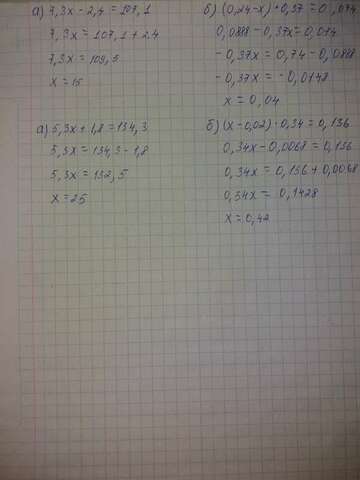 а) 7,3x - 2,4 = 107,1
7,3x = 107,1 + 2,4
7,3x = 109,5
x = 15
б) (0,24-x) · 0,37 = 0,074
0,0888 - 0,37x = 0,074
- 0,37x = 0,74 - 0,0888
- 0,37x = - 0,0148
x = 0,04
а) 5,3x + 1,8 = 134,3
5,3x = 134,3 - 1,8
5,3x = 132,5
x = 25
б) (x - 0,02) · 0,34 = 0,136
0,34x - 0,0068 = 0,136
0,34x = 0,136 + 0,0068
0,34x = 0,1428
x = 0,42